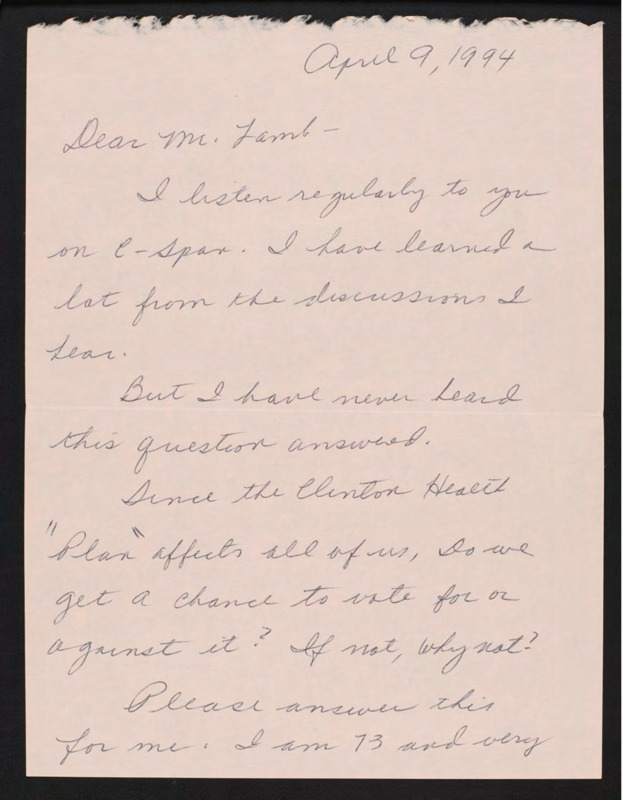 April 9, 1994
Dear Mr. Lamb –
I listen regularly to you
on C-Span. I have learned a
lot from the discussions I
hear.
But I have never heard
this question answered.
Since the Clinton Health
"Plan" affects all of us, Do we
get a chance to vote for or
against it? If not, why not?
Please answer this
for me. I am 73 and very